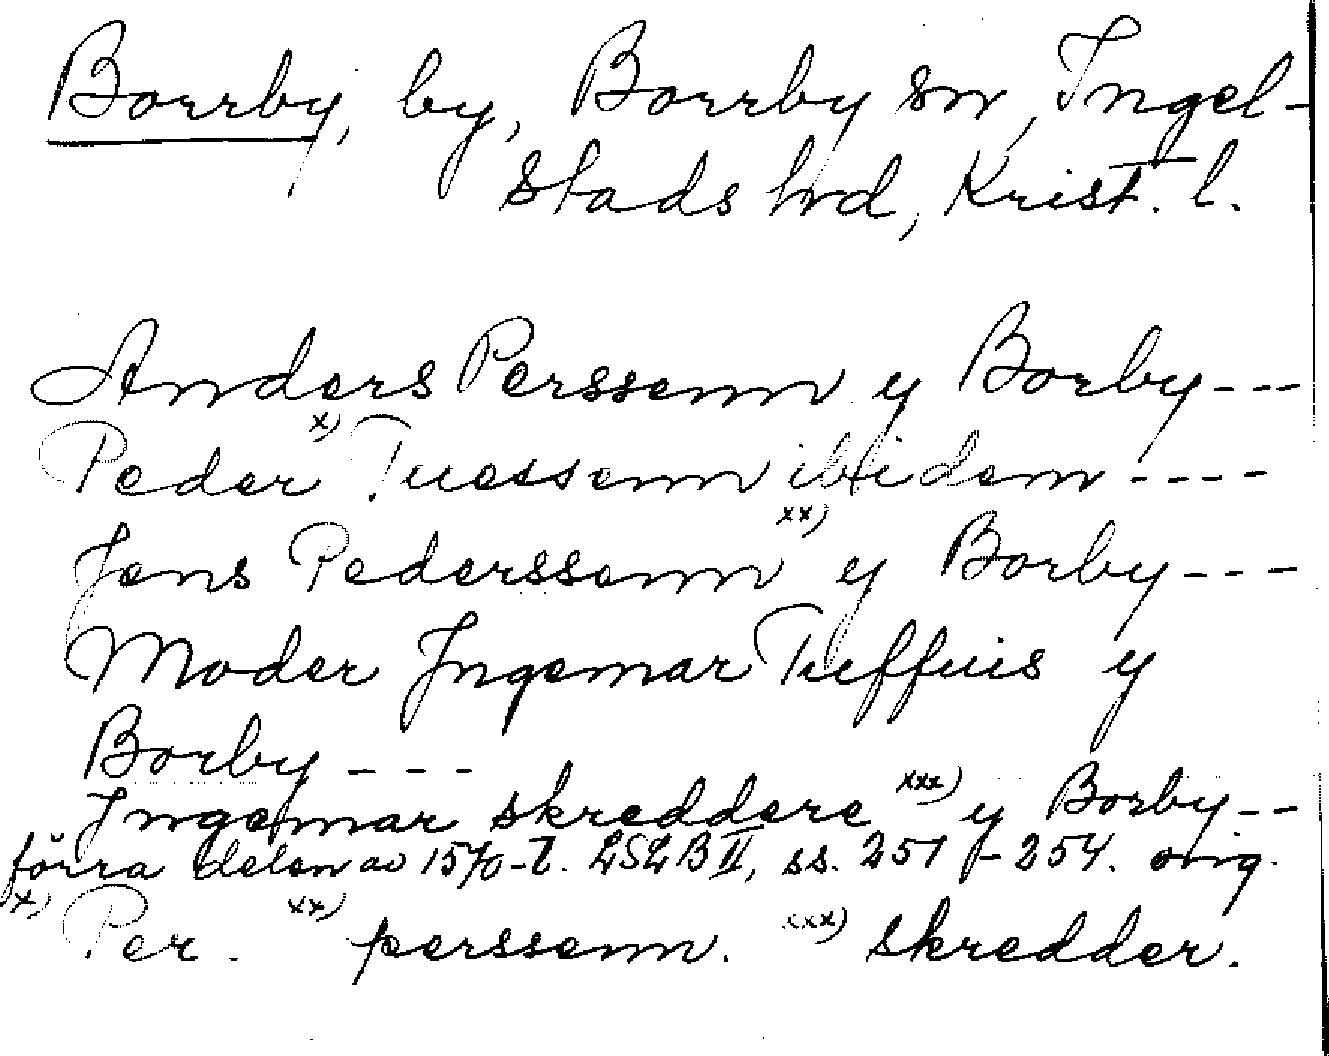 Borrby, by, Borrby sn, Ingel-
stads hrd, Krist. l.
Anders Perssenn y Borby---
Peder x) Tuessenn ibidem----
Jens Pederssenn xx) y Borby---
Moder Ingemar Tueffuis y
Borby---
Ingemar skreddere xxx) y Borby--
förra delen av 1570-t. LSLB II, ss. 251 f-254. orig.
x) Per. xx) perssenn. xxx) skredder.